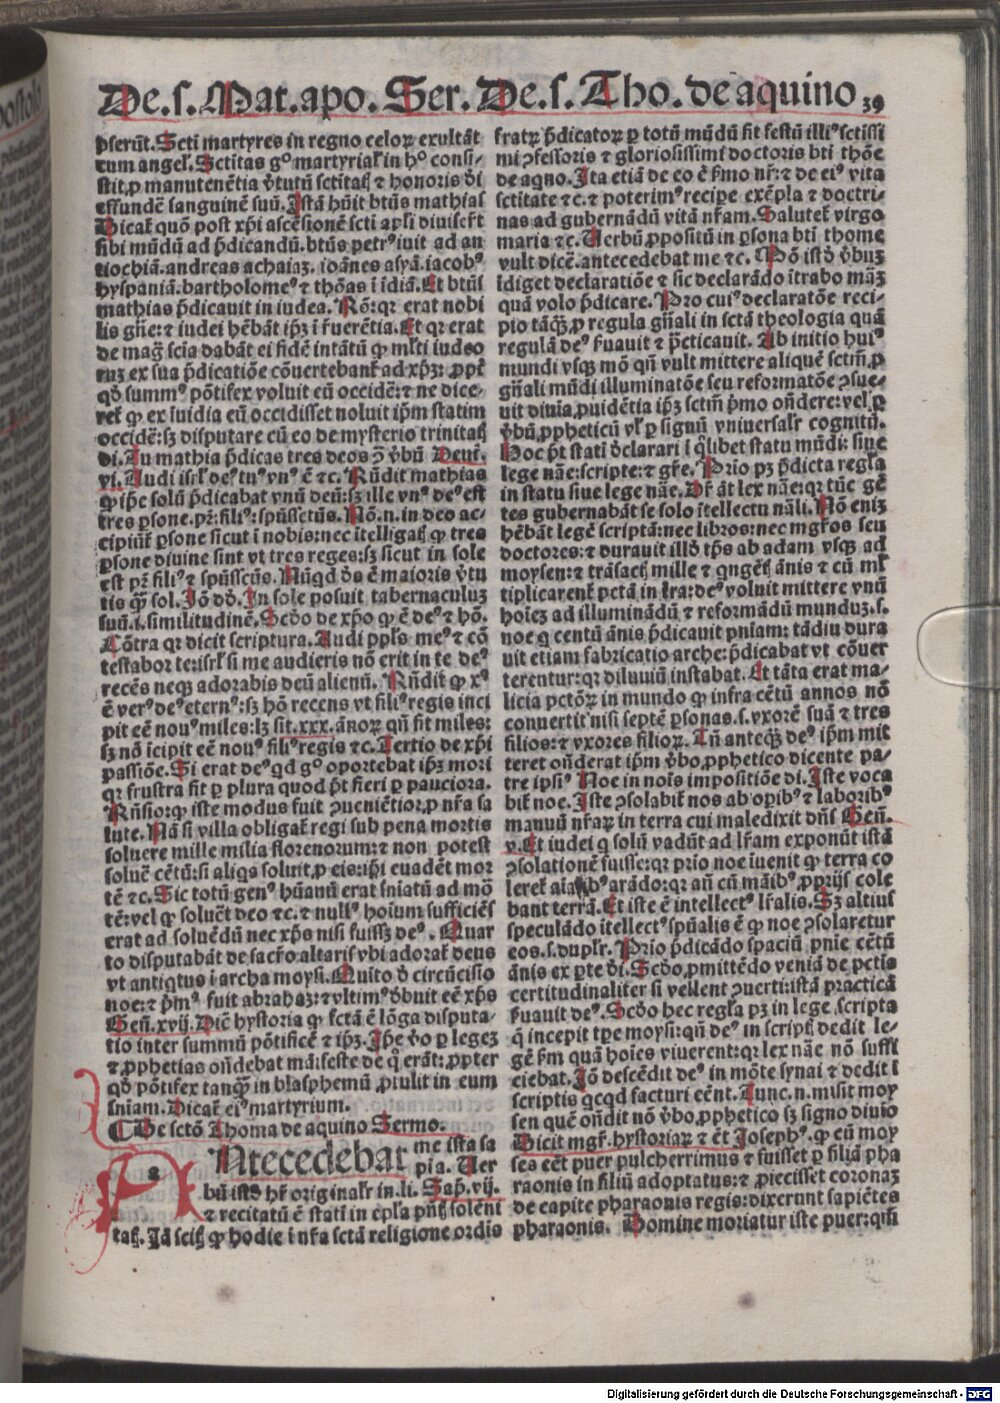 De.s.Mat.apo. Ser. De.s.Tho.de aquino 39
ꝑserūt. Scti martyres in regno celoꝝ exultāt
cum angeł. Sctitas gᵒ martyriał in hᵒ consi-
stit, ꝓ manutenētia v̄tutū sctitatꝭ ⁊ honoris d̄i
effundē sanguinē suū. Istā hūit btūs mathias
Dicat̄ quō post xp̄i ascēsionē scti apl̄i diuiser̄t
sibi mūdū ad p̄dicandū. btūs petrꝰ iuit ad an
tiochiā. andreas achaiaꝫ. ioānes asyā. iacobꝰ
hyspaniā. bartholomeꝰ ⁊ thōas ī īdiā. Et btūs
mathias p̄dicauit in iudea. Rō: qꝛ erat nobi
lis gn̄e: ⁊ iudei hēbāt ip̄ꝫ ī r̄uerētia. Et qꝛ erat
de maḡ scīa dabāt ei fidē intātū ꝙ ml̄ti iudeo
ruꝫ ex sua p̄dicatiōe cōuertebant̄ ad xp̄ꝫ: ꝓpt̄
qd̄ summꝰ pōtifex voluit eū occidē: ⁊ ne dice-
ret̄ ꝙ ex īuidia eū occidisset noluit ip̄m statim
occidē: sꝫ disputare cū eo de mysterio trinitatꝭ
di. Tu mathia p̄dicas tres deos ↄ̄ v̄bū Deut̄.
vi. Audi isrl̄ deꝰ tuꝰ vnꝰ ē ⁊c. Rn̄dit mathias
ꝙ ip̄e solū p̄dicabat vnū deū: sꝫ ille vnꝰ deꝰ est
tres ꝑsone. pr̄: filiꝰ: spūssctūs. Nō. n. in deo ac-
cipiūt̄ ꝑsone sicut ī nobis: nec itelligat̄ꝭ ꝙ tres
ꝑsone diuine sint vt tres reges: sꝫ sicut in sole
est pr̄ filiꝰ ⁊ spūsscūs. Nūqd d̄s ē maioris v̄tu
tis ꝙ̄ sol. Iō dd̄. In sole posuit tabernaculuꝫ
suū. i. similitudinē. Scd̄o de xp̄o ꝙ ē deꝰ ⁊ hō.
Cōtra qꝛ dicit scriptura. Audi ppl̄s meꝰ ⁊ cō
testabor te: isrl̄ si me audieris nō erit in te deꝰ
recēs neqꝫ adorabis deū alienū. Rn̄dit ꝙ xꝰ
ē verꝰ deꝰ eternꝰ: sꝫ hō recens vt filiꝰ regis inci
pit eē nouꝰ miles: lꝫ sit. xxx. ānoꝝ qn̄ fit miles:
sꝫ nō īcipit eē nouꝰ filiꝰ regis ⁊c. Tertio de xp̄i
passiōe. Si erat deꝰ qd gᵒ oportebat ip̄ꝫ mori
qꝛ frustra fit ꝑ plura quod pt̄ fieri ꝑ pauciora.
Rn̄sio: qꝛ iste modus fuit ↄueniētior, ꝓ nr̄a sa
lute. Nā si villa obligat̄ regi sub pena mortis
soluere mille milia florenorum: ⁊ non potest
soluē cētū: si aliqs soluit, ꝓ eis: ip̄i euadēt mor
tē ⁊c. Sic totū genꝰ hūanū erat sniatū ad mō
tē: vel ꝙ soluēt deo ⁊c. ⁊ nullꝰ hoīum sufficiēs
erat ad soluēdū nec xp̄s nisi fuissꝫ deꝰ. Quar
to disputabāt de sacr̄o altaris vbi adorat̄ deus
vt antiqtus ī archa moysi. Quito d̄ circūcisio
noe: ⁊ p̄mꝰ fuit abrahaꝫ: ⁊ vltimꝰ d̄buit eē xp̄s
Gen̄. xvij. Dicē hystoria ꝙ fctā ē lōga disputa-
tio inter summū pōtificē ⁊ ip̄ꝫ. Ip̄e v̄o ꝑ legeꝫ
⁊ ꝓphetias on̄debat māifeste de q̄ erāt: ꝓpter
qd̄ pōtifex tanqꝫ̄ in blasphemū ꝓtulit in eum
sniam. Dicat̄ eiꝰ martyrium.
¶ De sctō Thoma de aquino Sermo.
Antecedebat me ista sa
pia. Uer
bū istd̄ hr̄ originalr̄ in. li. Sap̄. vij.
⁊ recitatū ē statī in epl̄a pn̄tꝭ solēni
tatꝭ. Iā scitꝭ ꝙ hodie ī nr̄a sctā religione ordīs
fratꝝ p̄dicatoꝝ ꝑ totū mūdū fit festū illiꝰ sctissi
mi ↄfessoris ⁊ gloriosissimi doctoris bt̄i thōe
de aqno. Ita etiā de eo ē s̄mo nr̄: ⁊ de eiꝰ vita
sctitate ⁊c. ⁊ poterimꝰ recipe exēpla ⁊ doctri-
nas ad gubernādū vitā nr̄am. Salutet̄ virgo
maria ⁊c. Uerbū, ꝓpositū in ꝑsona bt̄i thome
vult dicē. antecedebat me ⁊c. Pō istd̄ v̄buꝫ
īdiget declaratiōe ⁊ sic declarādo ītrabo māꝫ
quā volo p̄dicare. Pro cuiꝰ declaratōe reci-
pio tāqꝫ̄, ꝓ regula gn̄ali in sctā theologia quā
regulā deꝰ s̄uauit ⁊ p̄cticauit. Ab initio huiꝰ
mundi vsqꝫ mō qn̄ vult mittere aliquē sctm̄, ꝓ
gn̄ali mūdi illuminatōe seu reformatōe ↄsue-
uit diuīa, ꝓuidētia ip̄ꝫ sctm̄ p̄mo on̄dere: vel ꝑ
v̄bū, ꝓpheticū vl̄ ꝑ signū vniuersalr̄ cognitū.
Hoc pt̄ statī d̄clarari ī q̄libet statu mūdi: siue
lege nāe: scripte: ⁊ gr̄e. Prio pꝫ p̄dicta regl̄a
in statu siue lege nāe. Dr̄ āt lex nāe: qꝛ tūc gē
tes gubernabāt se solo ītellectu nāli. Nō eniꝫ
hēbāt legē scriptā: nec libros: nec mgr̄os seu
doctores: ⁊ durauit illd̄ tp̄s ab adam vsqꝫ ad
moysen: ⁊ trāsactꝭ mille ⁊ qngētꝭ ānis ⁊ cū ml̄
tiplicarent̄ pctā in tr̄a: deꝰ voluit mittere vnū
hoīeꝫ ad illuminādū ⁊ reformādū munduꝫ. s.
noe q centū ānis p̄dicauit pniam: tādiu dura
uit etiam fabricatio arche: p̄dicabat vt cōuer
terentur: qꝛ diluuiū instabat. Et tāta erat ma-
licia pctōꝝ in mundo ꝙ infra cētū annos nō
conuertit nisi septē ꝑsonas. s. vxorē suā ⁊ tres
filios: ⁊ vxores filioꝝ. Tn̄ anteqꝫ̄ deꝰ ip̄m mit
teret on̄derat ip̄m v̄bo, ꝓphetico dicente pa-
tre ipsiꝰ Noe in noīs impositiōe di. Iste voca
bit̄ noe. Iste ↄsolabit̄ nos ab oꝑibꝰ ⁊ laboribꝰ
manuū nr̄aꝝ in terra cui maledixit dn̄s Gen̄.
v. Et iudei q solū vadūt ad lr̄am exponūt istā
ↄsolationē fuisse: qꝛ prio noe īuenit ꝙ terra co
leret̄ aīalibꝰ arādo: qꝛ an̄ cū māibꝰ, ꝓprijs cole
bant terrā. Et iste ē intellectꝰ lr̄alis. Sꝫ altiuſ
speculādo ītellectꝰ spūalis ē ꝙ noe ↄsolaretur
eos. s. duplr̄. Prio p̄dicādo spaciū pnie cētū
ānis ex ꝑte d̄i. Scd̄o, ꝓmittēdo veniā de pctis
certitudinaliter si vellent ↄuerti: istā practicā
s̄uauit deꝰ. Scd̄o hec regl̄a pꝫ in lege scripta
q̄ incepit tꝑe moysi: qn̄ deꝰ in scriptꝭ dedit le-
gē s̄m quā hoīes viuerent: qꝛ lex nāe nō suffi
ciebat. Iō descēdit deꝰ in mōte synai ⁊ dedit ī
scriptis qcqd facturi eēnt. Tunc. n. misit moy
sen quē on̄dit nō v̄bo, ꝓphetico sꝫ signo diuīo
Dicit mgr̄. hystoriaꝝ ⁊ ēt Iosephꝰ. ꝙ cū moy
ses eēt puer pulcherrimus ⁊ fuisset ꝑ filiā pha
raonis in filiū adoptatus: ⁊ ꝓiecisset coronaꝫ
de capite pharaonis regis: dixerunt sapiētes
pharaonis. Domine moriatur iste puer: qꝛ si
Digitalisierung gefördert durch die Deutsche Forschungsgemeinschaft - DFG